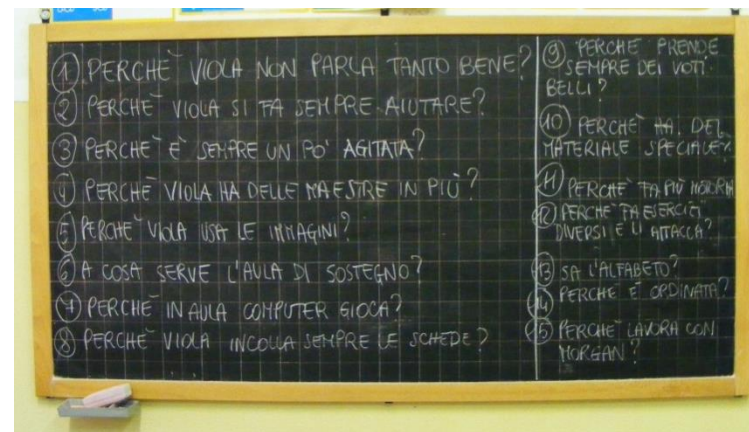 1 PERCHÈ VIOLA NON PARLA TANTO BENE?
2 PERCHÈ VIOLA SI FA SEMPRE AIUTARE?
3 PERCHÈ È SEMPRE UN PO' AGITATA?
4 PERCHÈ VIOLA HA DELLE MAESTRE IN PIÙ?
5 PERCHÈ VIOLA USA LE IMMAGINI?
6 A COSA SERVE L'AULA DI SOSTEGNO?
7 PERCHÈ IN AULA COMPUTER GIOCA?
8 PERCHÈ VIOLA INCOLLA SEMPRE LE SCHEDE?
9 PERCHÈ PRENDE
SEMPRE DEI VOTI
BELLI?
10 PERCHÈ HA DEL
MATERIALE SPECIALE?
11 PERCHÈ FA PIÙ MOTORIA
12 PERCHÈ FA ESERCIZI
DIVERSI E LI ATTACCA?
13 SA L'ALFABETO?
14 PERCHÈ È ORDINATA?
15 PERCHÈ LAVORA CON
MORGAN?